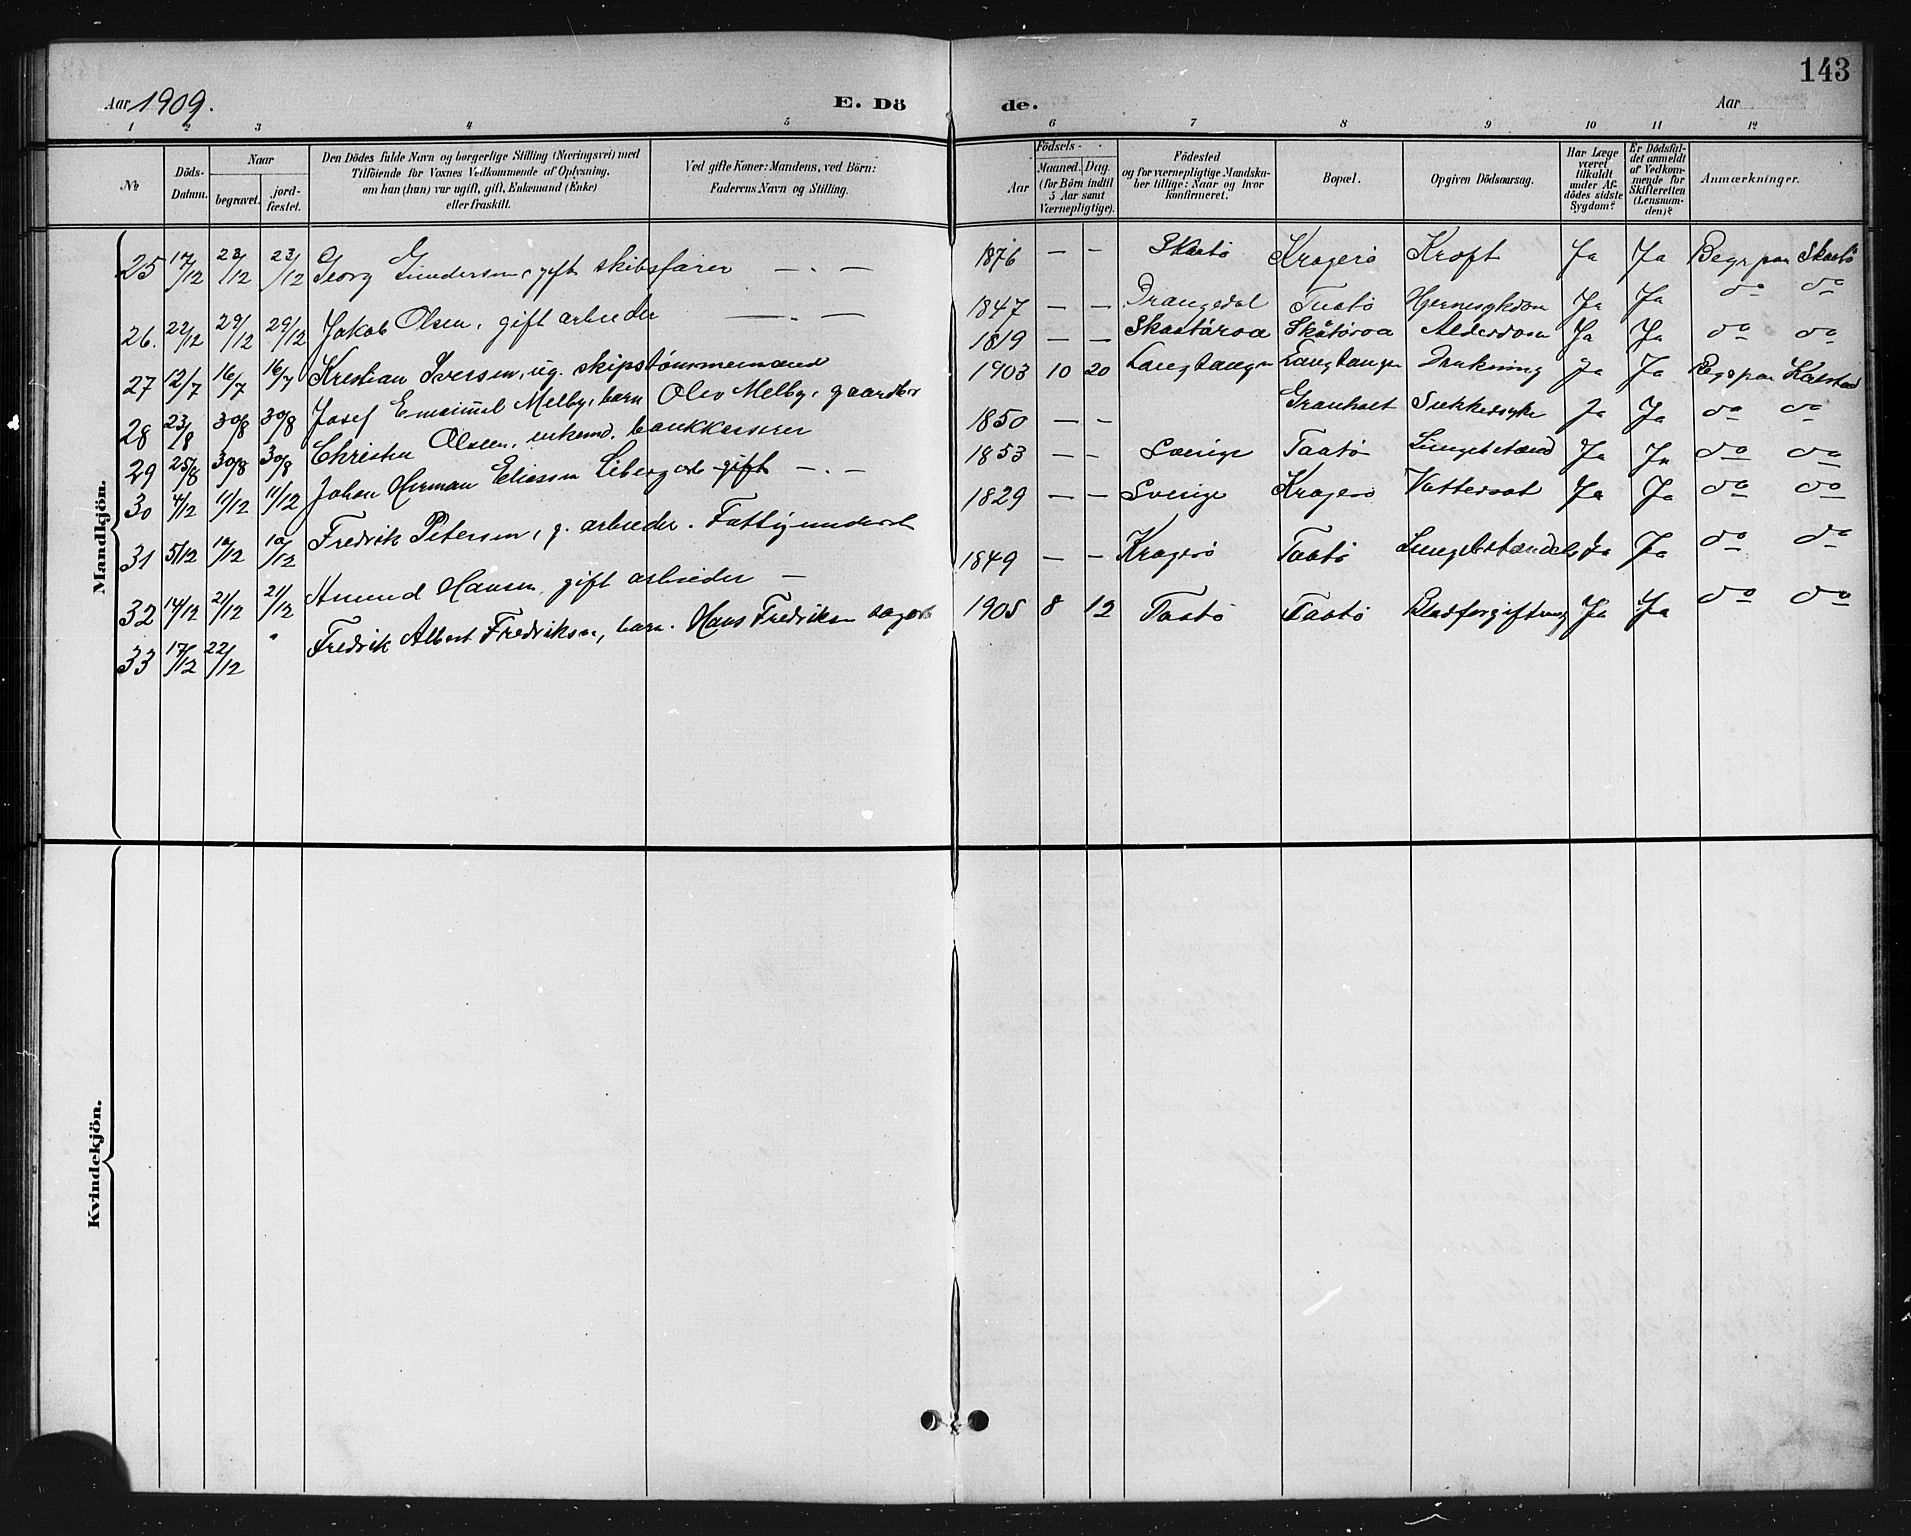 143
Aar 1909. E. Dö de. Aar
1 2 3 4 5 6 7 8 9 10 11 12
№ Döds-Datum. Naar begravet. jord-fæstet. Den Dödes fulde Navn og borgerlige Stilling (Næringsvei) med Tilföiende för Voxnes Vedkommende af Oplysning, om han (hun) var ugift, gift, Enkemand (Enke) eller fraskilt. Ved gifte Koner: Mandens, ved Börn: Faderens Navn og Stilling. Aar Födsels- Maaned. Dag. (for Börn indtil 5 Aar samt Værnepligtige). Födested og for værnepligtige Mandska-ber tillige: Naar og hvor konfirmeret. Bopæl. Opgiven Dödsaarsag. Har Læge været tilkaldt under Af-dödes sidste Sygdom? Er Dödsfal-det anmeldt af Vedkom-mende för Skifteretten (Lensman-den)? Anmærkninger.
Mandkjön.
25 17/12 23/12 23/12 Georg Gundersen, gift skibsfører — . — 1876 — — Skaatö Kragerö Kræft Ja Ja Begr paa Skaatö
26. 22/12 29/12 29/12 Jakob Olsen, gift arbeider — . — 1847 — — Drangedal Taatö Hjernesykdom Ja Ja do do
27 12/7 16/7 16/7 Kristian Iversen, ug. skipstømmermand 1819 — — Skaatöroa Skåtöroa Alderdom Ja Ja do do
28 23/8 30/8 30/8 Josef Emanuel Melby, barn Olav Melby, gaardbr 1903 10 20 Langtangen Langtangen Drukning Ja Ja Begr paa Kalstad
29 25/8 30/8 30/8 Christen Olsen, enkemd. bankkasserer 1850 — — Granholt Sukkersyke Ja Ja do do
30 4/12 11/12 11/12 Johan Herman Eliassen gift — . — 1853 — — Sverige Taatö Lungebetænd Ja Ja do do
31 5/12 12/12 12/12 Fredrik Petersen, g. arbeider. Fattigunderst 1829 — — Sverige Kragerö Vattersot Ja Ja do do
32 14/12 21/12 21/12 Amund Hansen, gift arbeider — 1849 — — Kragerö Taatö Lungebetændelse Ja Ja do do
33 17/12 22/12 " Fredrik Albert Fredriksen, barn. Hans Fredriksen 1905 8 12 Taatö Taatö Blodforgiftning Ja Ja do do
Kvindekjön.